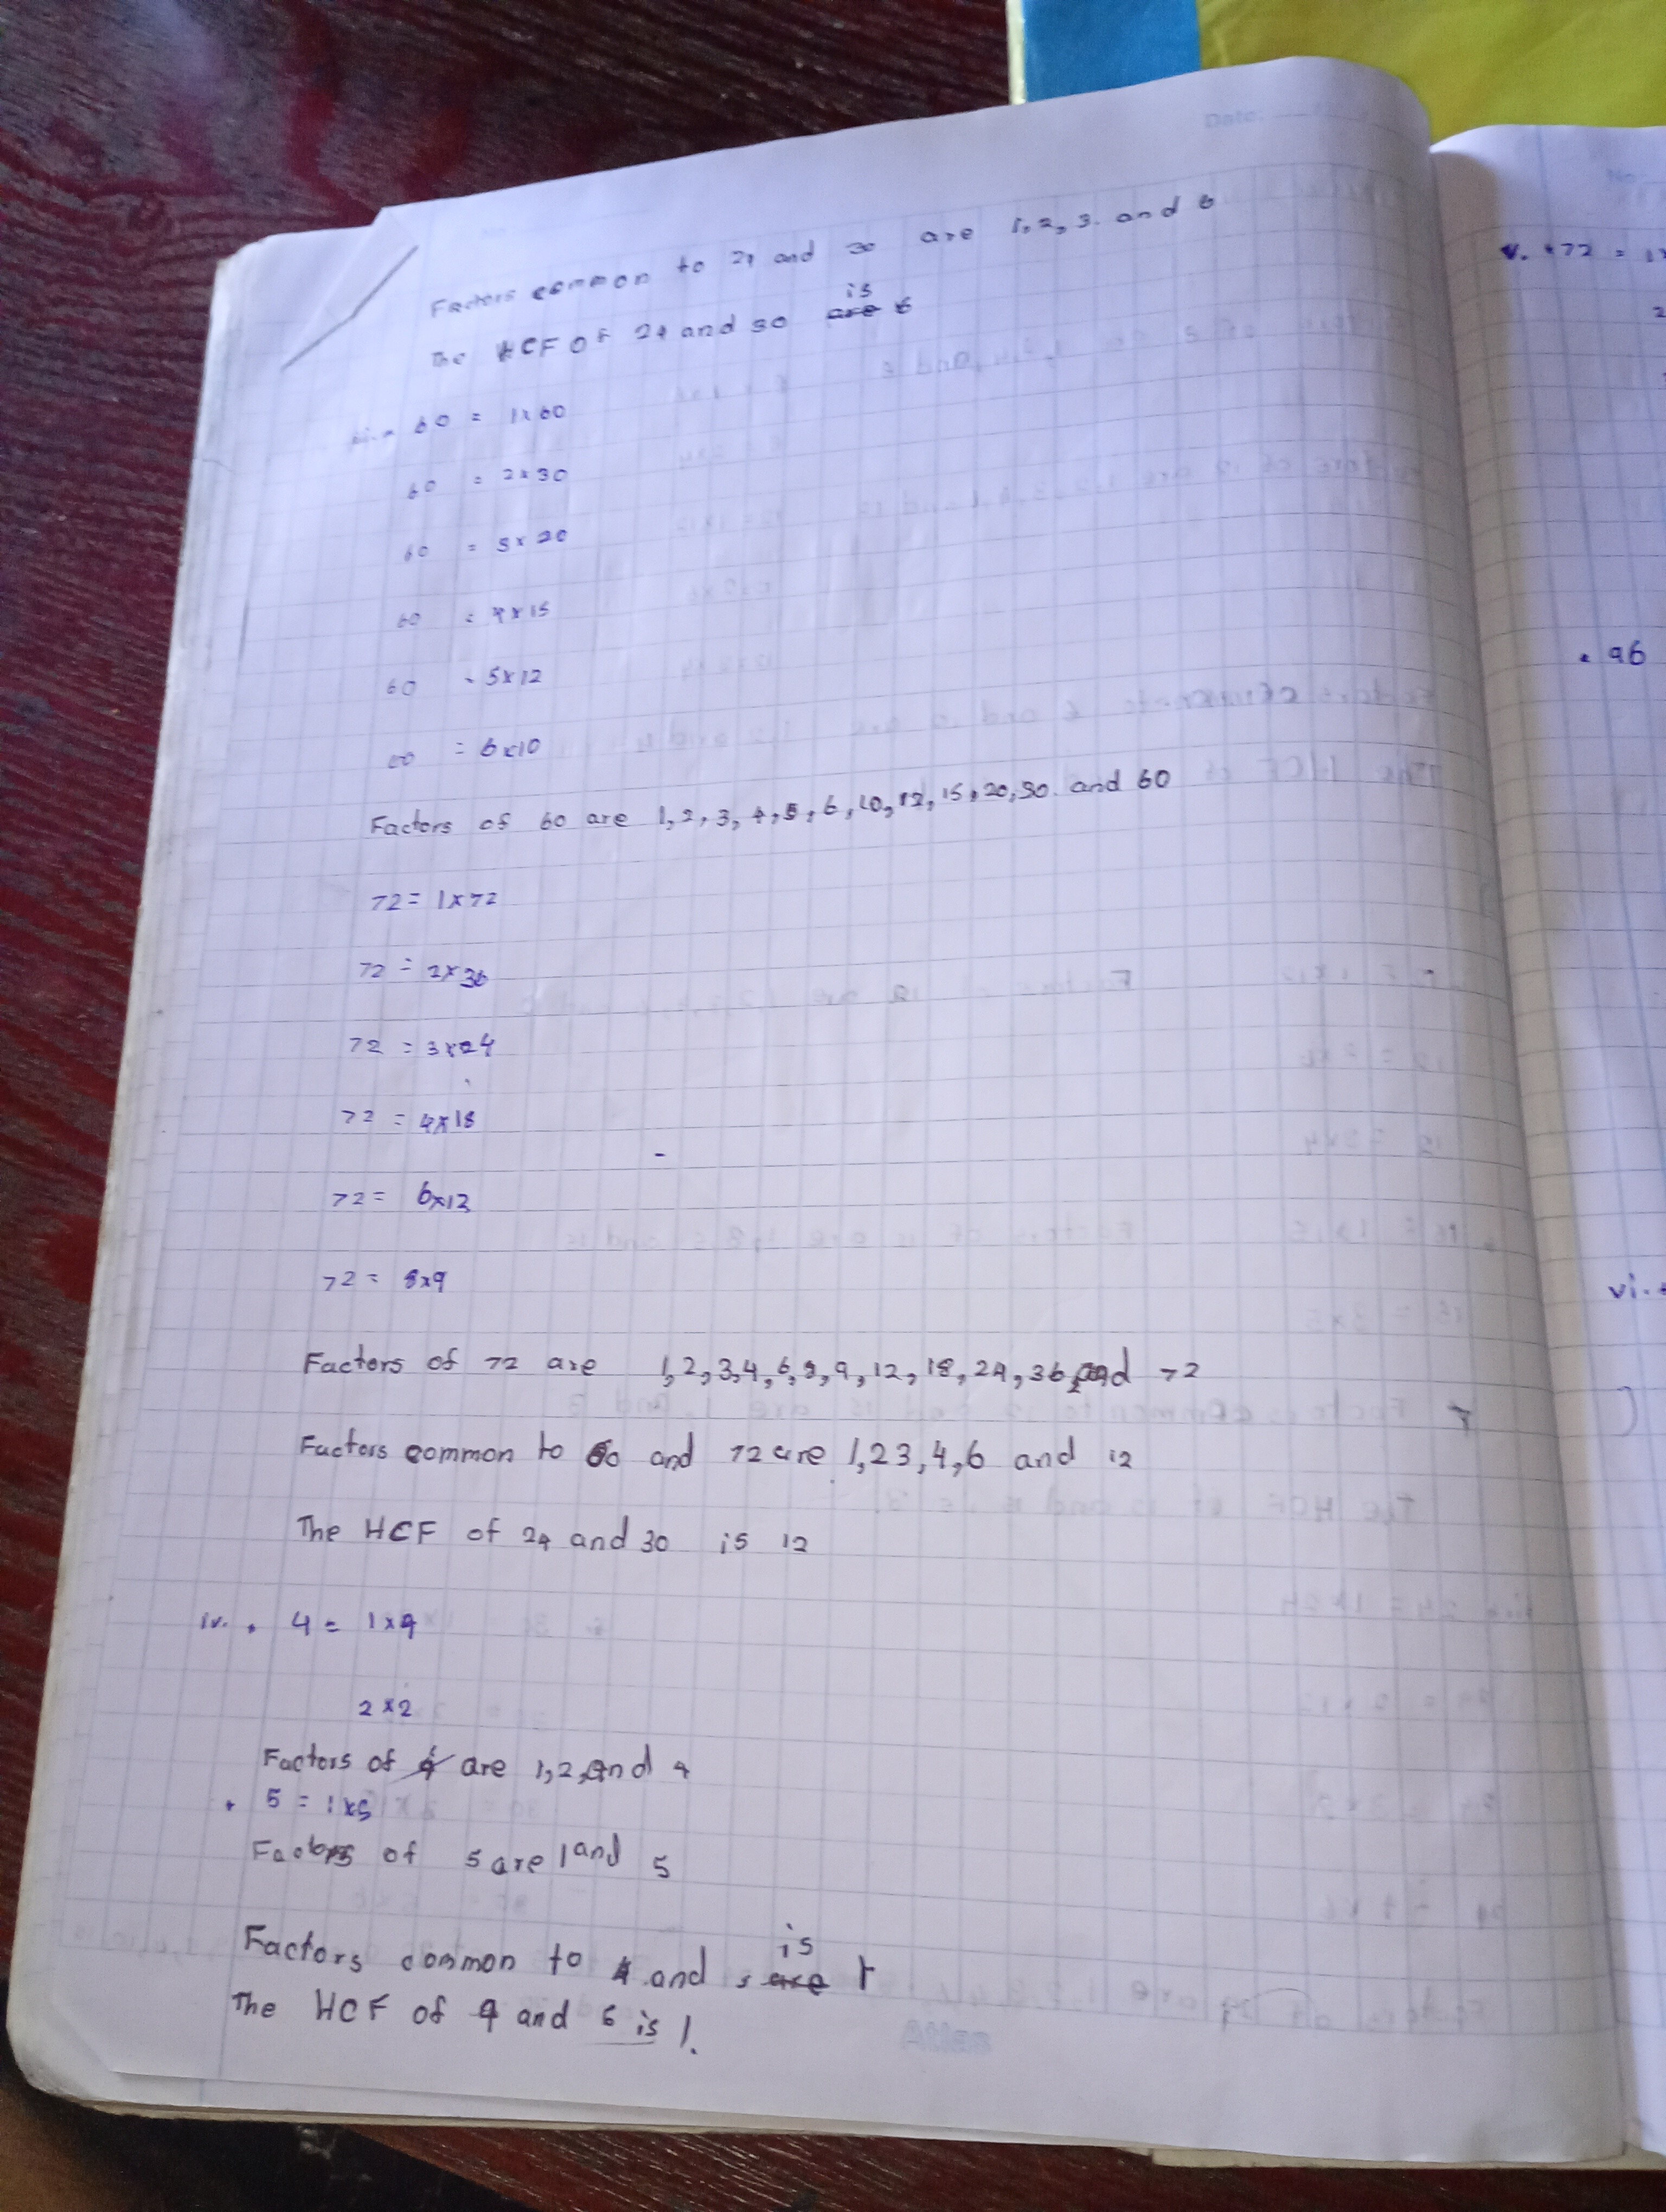 Date:
Factors common to 24 and 30 are 1, 2, 3. and 6
is
The HCF of 24 and 30 are 6
60 = 1x60
60 = 2x30
60 = 3x20
60 = 4x15
60 = 5x12
60 = 6x10
Factors of 60 are 1, 2, 3, 4, 5, 6, 10, 12, 15, 20, 30. and 60
72 = 1x72
72 = 2x36
72 = 3x24
72 = 4x18
72 = 6x12
72 = 8x9
Factors of 72 are 1,2,3,4,6,8,9,12,18,24,36,and 72
Factors common to 60 and 72 are 1,23,4,6 and 12
The HCF of 24 and 30 is 12
iv. . 4 = 1x4
2x2
Factors of 4 are 1,2,and 4
. 5 = 1x5
Factors of 5 are 1 and 5
is
Factors common to 4 and 5 are 1
The HCF of 4 and 5 is 1.
Atlas
No:
v. .72 = 1
. 96
vi.